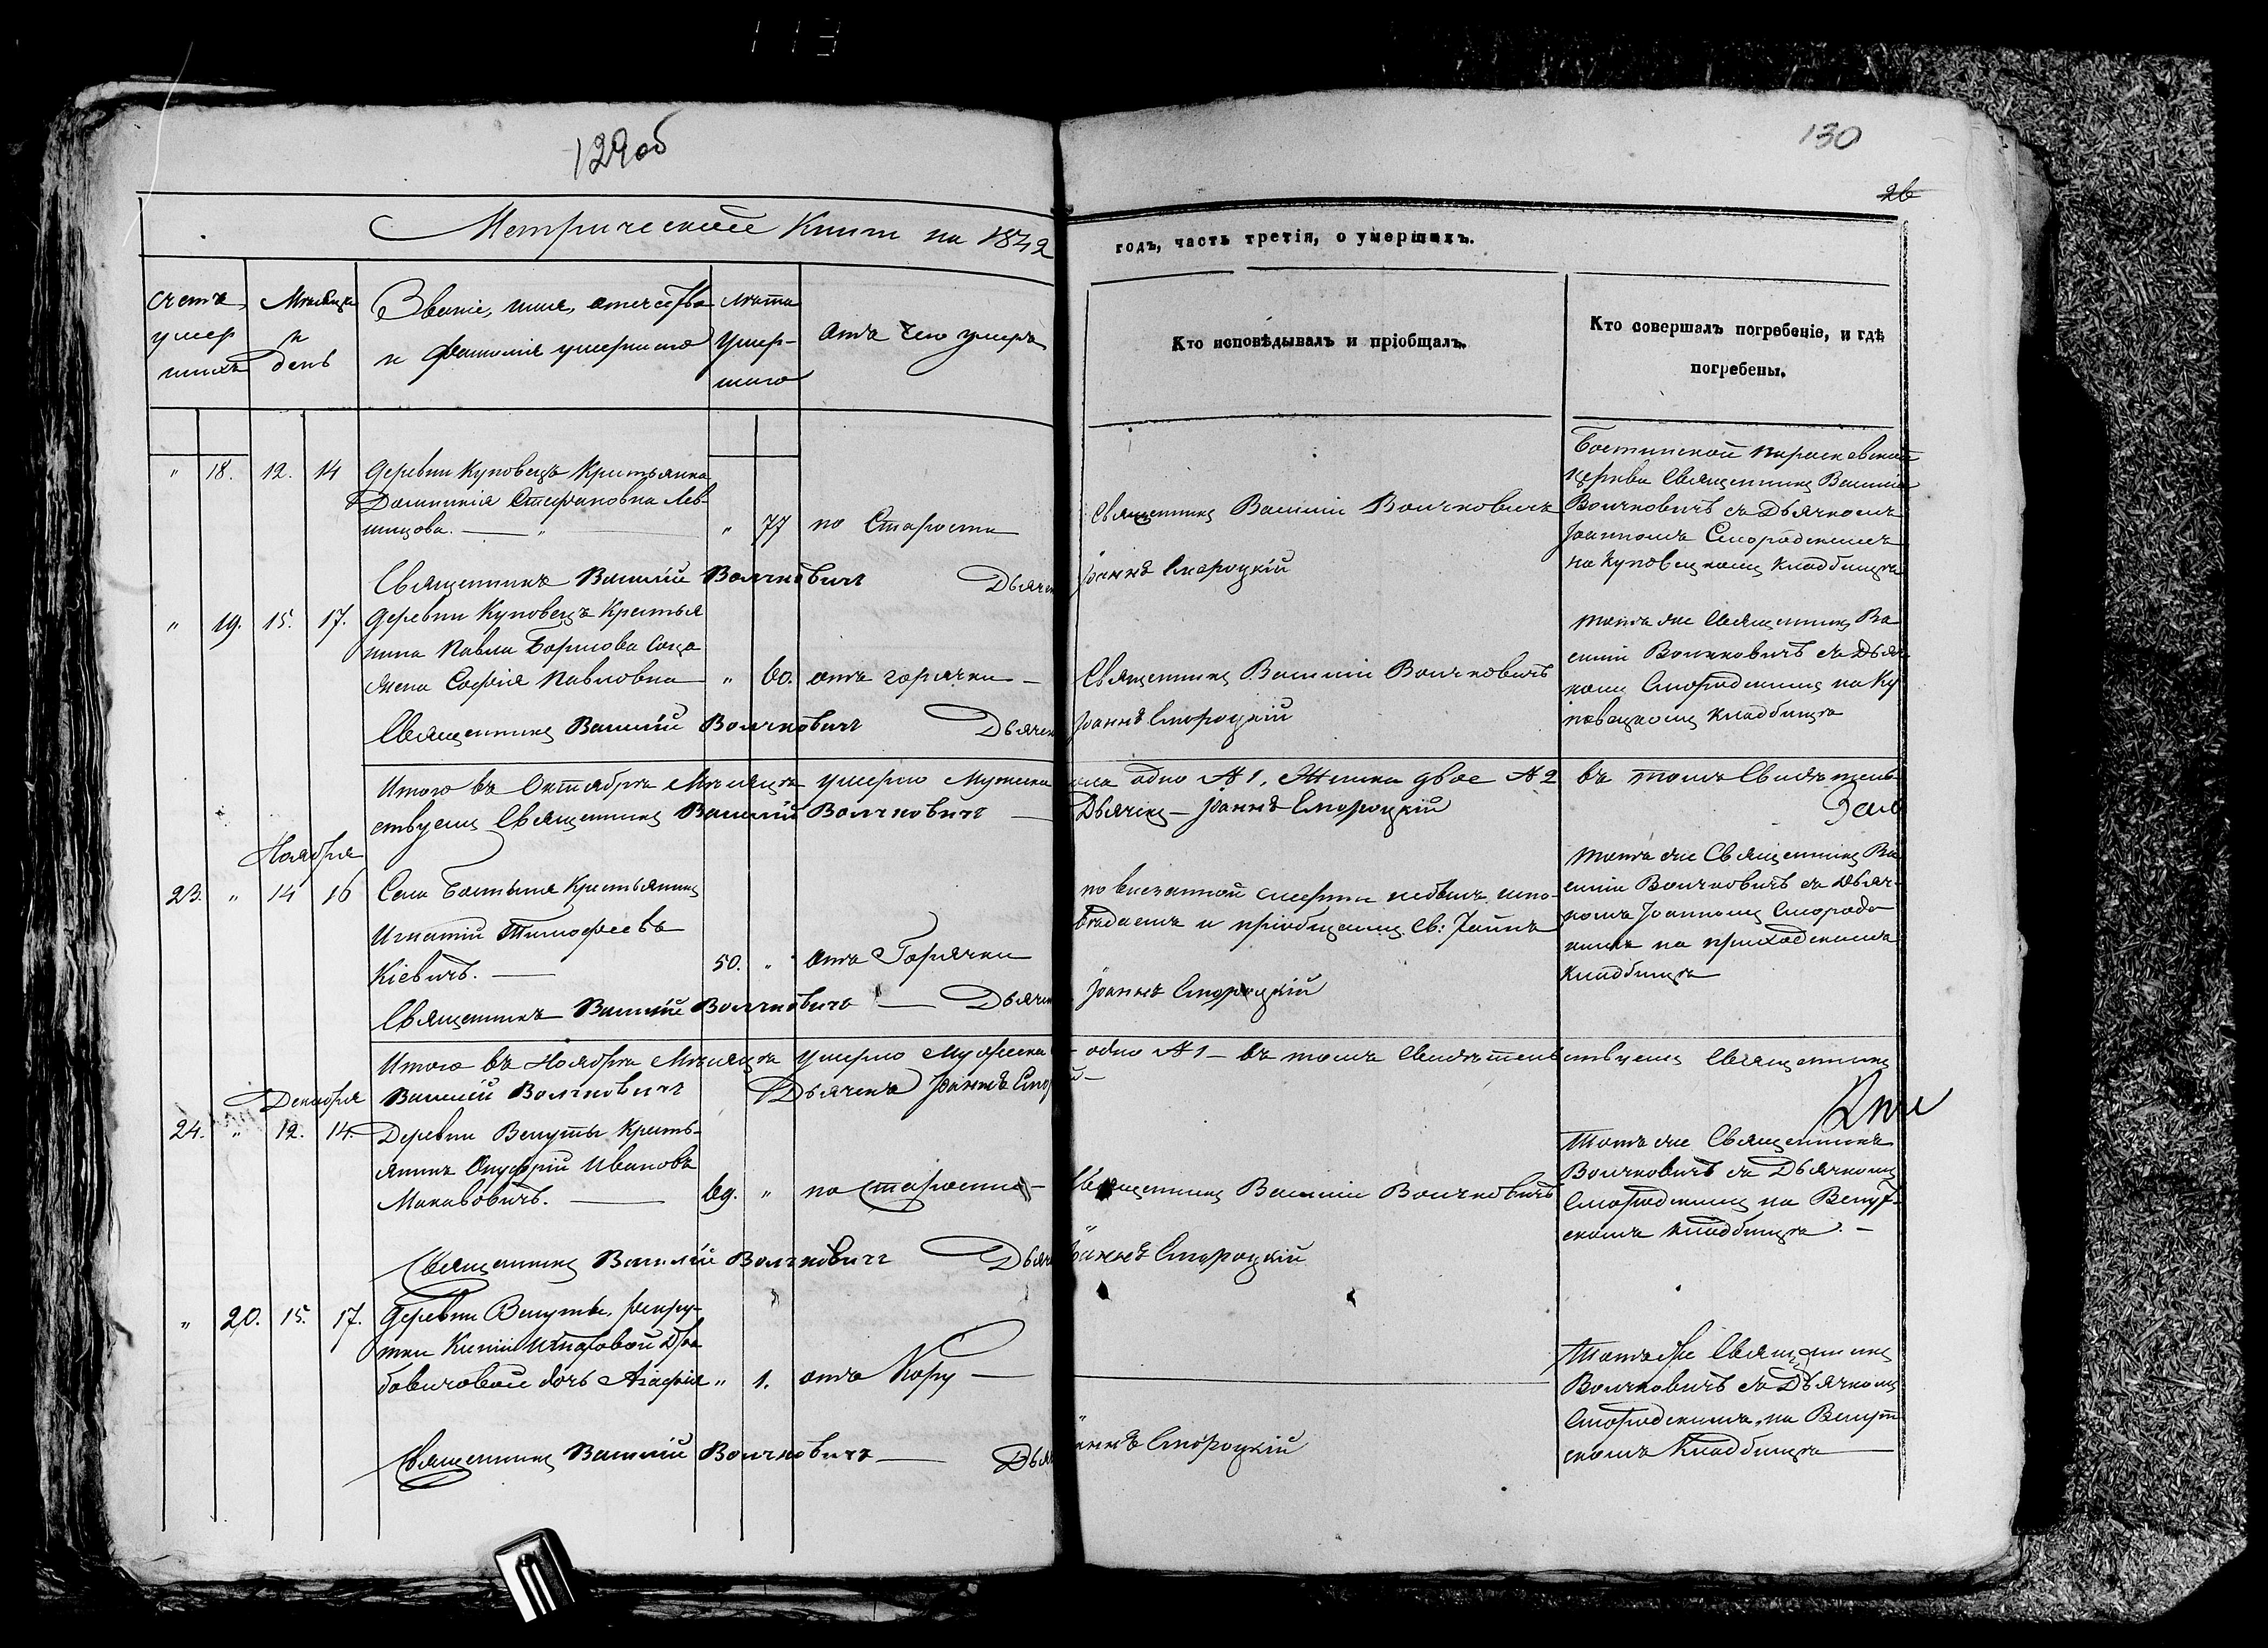 113
129об
130
26
Метрической Книги на 1842
годъ, часть третія, о умершихъ.
счетъ умер шихъ
Мѣсяцъ и день
Званіе, имя, отечество
и фамилія умершаго
лѣта умер- шаго
отъ чего умеръ
Кто исповѣдывалъ и пріобщалъ.
Кто совершалъ погребеніе, и гдѣ
погребены.
" 18. 12. 14
деревни Куповецъ Крестьянка
Доминикія Стефановна Лев-
шицова.
" 77 по Старости
Священникъ Василій Волчковичъ
Бостынской Параскевской
церкви Священникъ Василій
Волчковичъ съ Дьячкомъ
Іоанномъ Смородскимъ
на Куповецкомъ кладбищѣ
Священникъ Василій Волчковичъ Дьячекъ Іоаннъ Смороцкій
" 19. 15. 17.
деревни Куповецъ Крестья
нина Павла Борисова
жена Софія Павловна
" 60. отъ горячки
Священникъ Василій Волчковичъ
тотъ же Священникъ Ва
силій Волчковичъ съ Дьяч
комъ Смородскимъ на Ку
повецкомъ кладбищѣ
Священникъ Василій Волчковичъ Дьячекъ Іоаннъ Смороцкій
Итого въ Октябрѣ Мѣсяцѣ умерло Мужеска пола одно №1, Женска двое №2 въ томъ Свидѣтель
ствуемъ Священникъ Василій Волчковичъ Дьячекъ Іоаннъ Смороцкій
Ноября
23. " 14 16
Села Бостыня Крестьянинъ
Игнатій Тимофеевъ
Кіевичъ.
50. " отъ Горячки
по внезапной смерти небылъ испо-
вѣданъ и пріобщенъ Св: Таинъ
тотъ же Священникъ Ва
силій Волчковичъ съ Дьяч-
комъ Іоанномъ Смород
скимъ на приходскомъ
кладбищѣ
Священникъ Василій Волчковичъ Дьячекъ Іоаннъ Смороцкій
Итого въ Ноябрѣ Мѣсяцѣ умерло Мужеска одно №1 въ томъ Свидѣтельствуемъ Священникъ
Василій Волчковичъ Дьячекъ Іоаннъ
Декабря
24. " 12. 14.
Деревни Велуты Кресть-
янинъ Онуфрій Ивановъ
69. " по старости
Священникъ Василій Волчковичъ
Тотъ же Священникъ
Волчковичъ съ Дьячкомъ
Смородскимъ на Велут-
скомъ кладбищѣ.
Священникъ Василій Волчковичъ Дьячекъ Іоаннъ Смороцкій
" 20. 15. 17.
деревни Велуты, рекру-
тки
дочь Агафія
" 1. отъ Кору
Тотъ же Священникъ
Волчковичъ съ Дьячкомъ
Смородскимъ на Велут
скомъ Кладбищѣ
Священникъ Василій Волчковичъ Іоаннъ Смороцкій